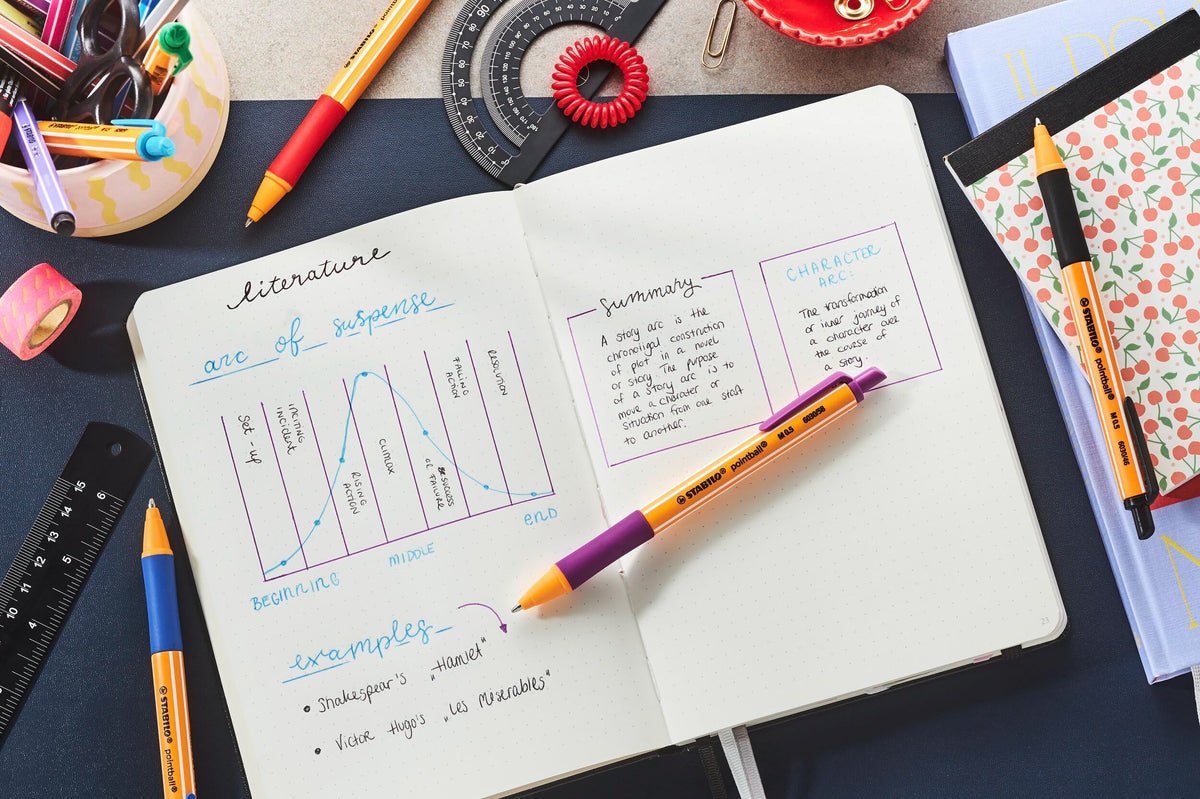 literature
arc of suspense
Set-up
INCITING
INCIDENT
RISING
ACTION
CLIMAX
SUCCESS
OF FAILURE
FALLING
ACTION
RESOLUTION
BEGINNING
MIDDLE
END
examples
• Shakespear's „Hamlet"
• Victor Hugo's „Les Miserables"
Summary
A story arc is the
chronoligal construction
of plot in a novel
or story. The purpose
of a story arc is to
move a charater or
situation from one staft
to another.
CHARACTER
ARC:
The transformation
or inner journey of
a character over
the course of
a story.
23
STABILO® pointball® M 0.5 6030/58
STABILO® pointball® M 0.5 6030/46
STABILO® pointball®
STABILO®